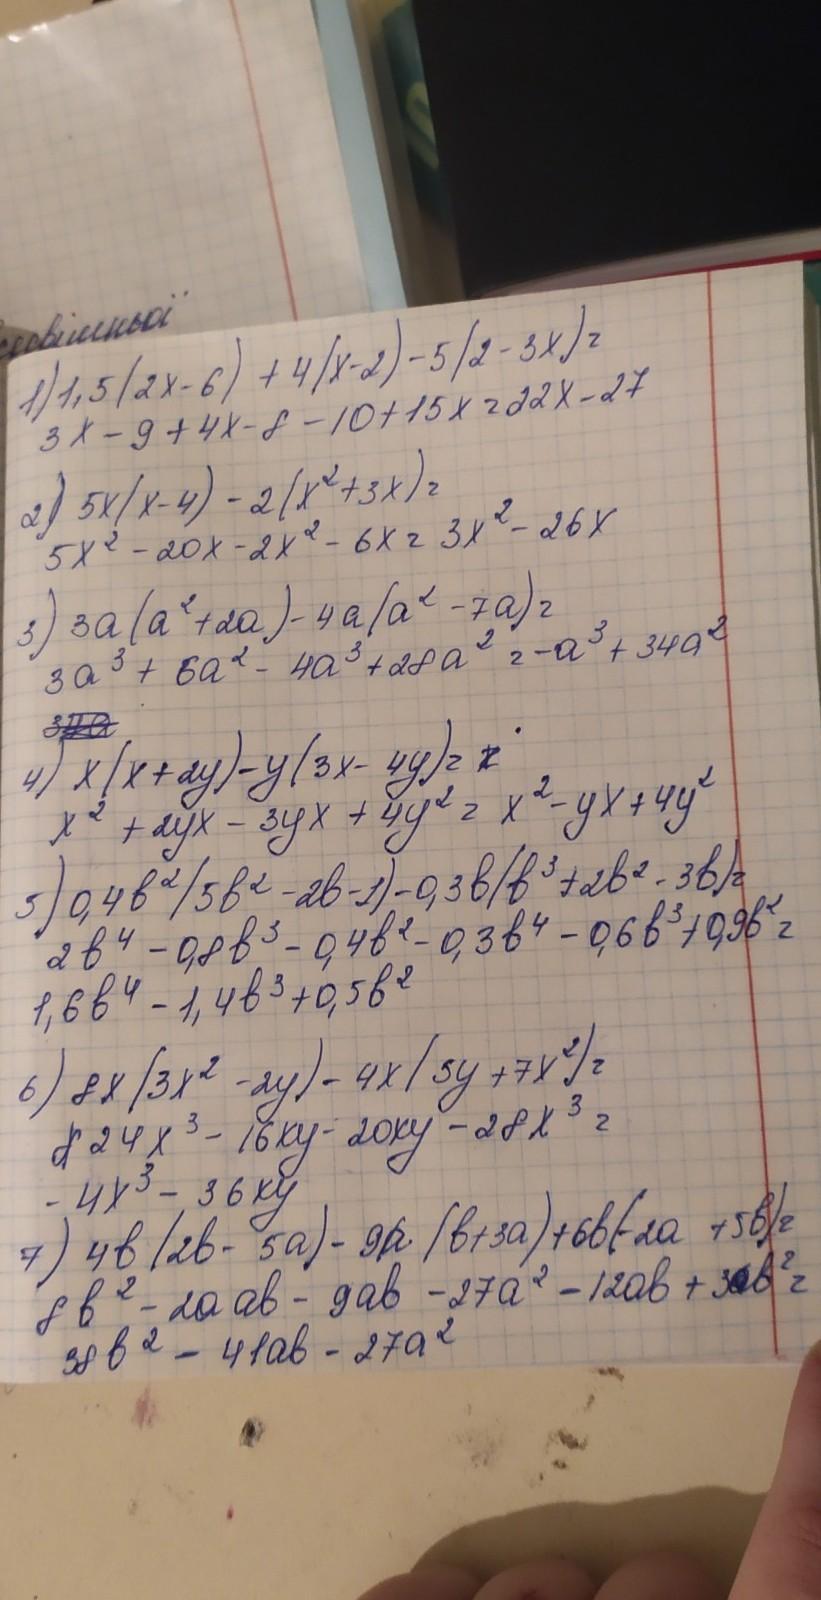 1) 1,5(2x-6) + 4(x-2) - 5(2-3x) =
3x - 9 + 4x - 8 - 10 + 15x = 22x - 27
2) 5x(x-4) - 2(x² + 3x) =
5x² - 20x - 2x² - 6x = 3x² - 26x
3) 3a(a² + 2a) - 4a(a² - 7a) =
3a³ + 6a² - 4a³ + 28a² = -a³ + 34a²
4) x(x + 2y) - y(3x - 4y) =
x² + 2yx - 3yx + 4y² = x² - yx + 4y²
5) 0,4b²(5b² - 2b - 1) - 0,3b(b³ + 2b² - 3b) =
2b⁴ - 0,8b³ - 0,4b² - 0,3b⁴ - 0,6b³ + 0,9b² =
1,6b⁴ - 1,4b³ + 0,5b²
6) 8x(3x² - 2y) - 4x(5y + 7x²) =
24x³ - 16xy - 20xy - 28x³ =
- 4x³ - 36xy
7) 4b(2b - 5a) - 9a (b + 3a) + 6b(-2a + 5b) =
8b² - 20ab - 9ab - 27a² - 12ab + 30b² =
38b² - 41ab - 27a²